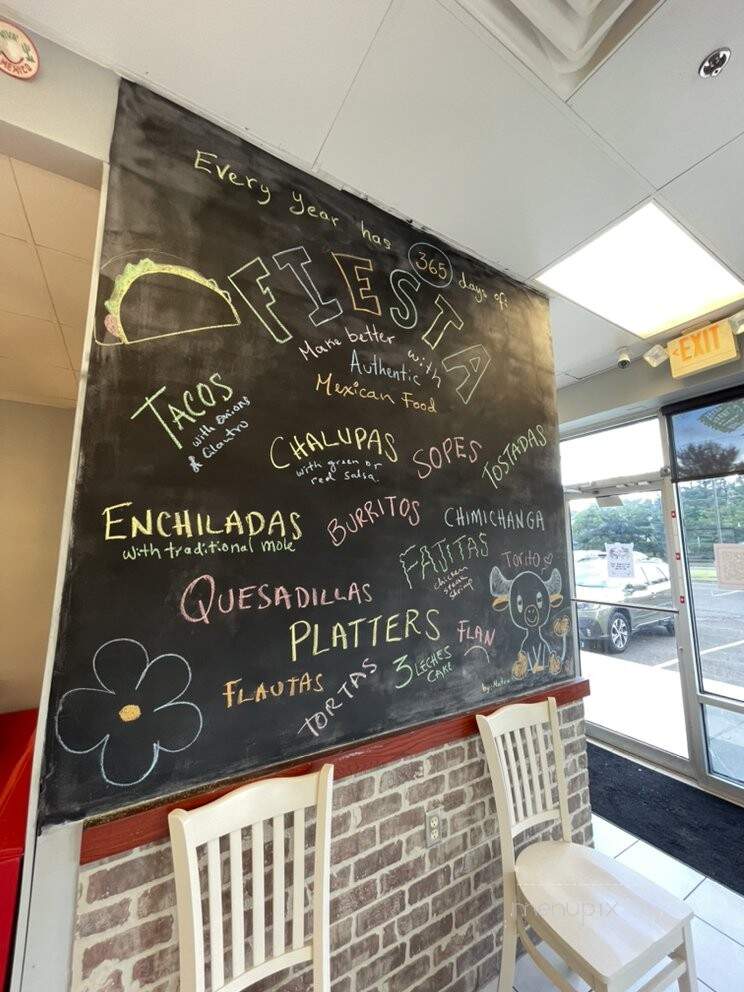 VIVA
MEXICO
Every Year has 365 days of:
FIESTA
Make better with
Authentic
Mexican Food
TACOS
with onions
& Cilantro
CHALUPAS
with green or
red salsa.
SOPES
TOSTADAS
ENCHILADAS
with traditional mole
BURRITOS
CHIMICHANGA
FAJITAS
chicken
steak
shrimp
Torito
QUESADILLAS
PLATTERS
FLAN
FLAUTAS
TORTAS
3 LECHES
CAKE
by:
EXIT
menupix